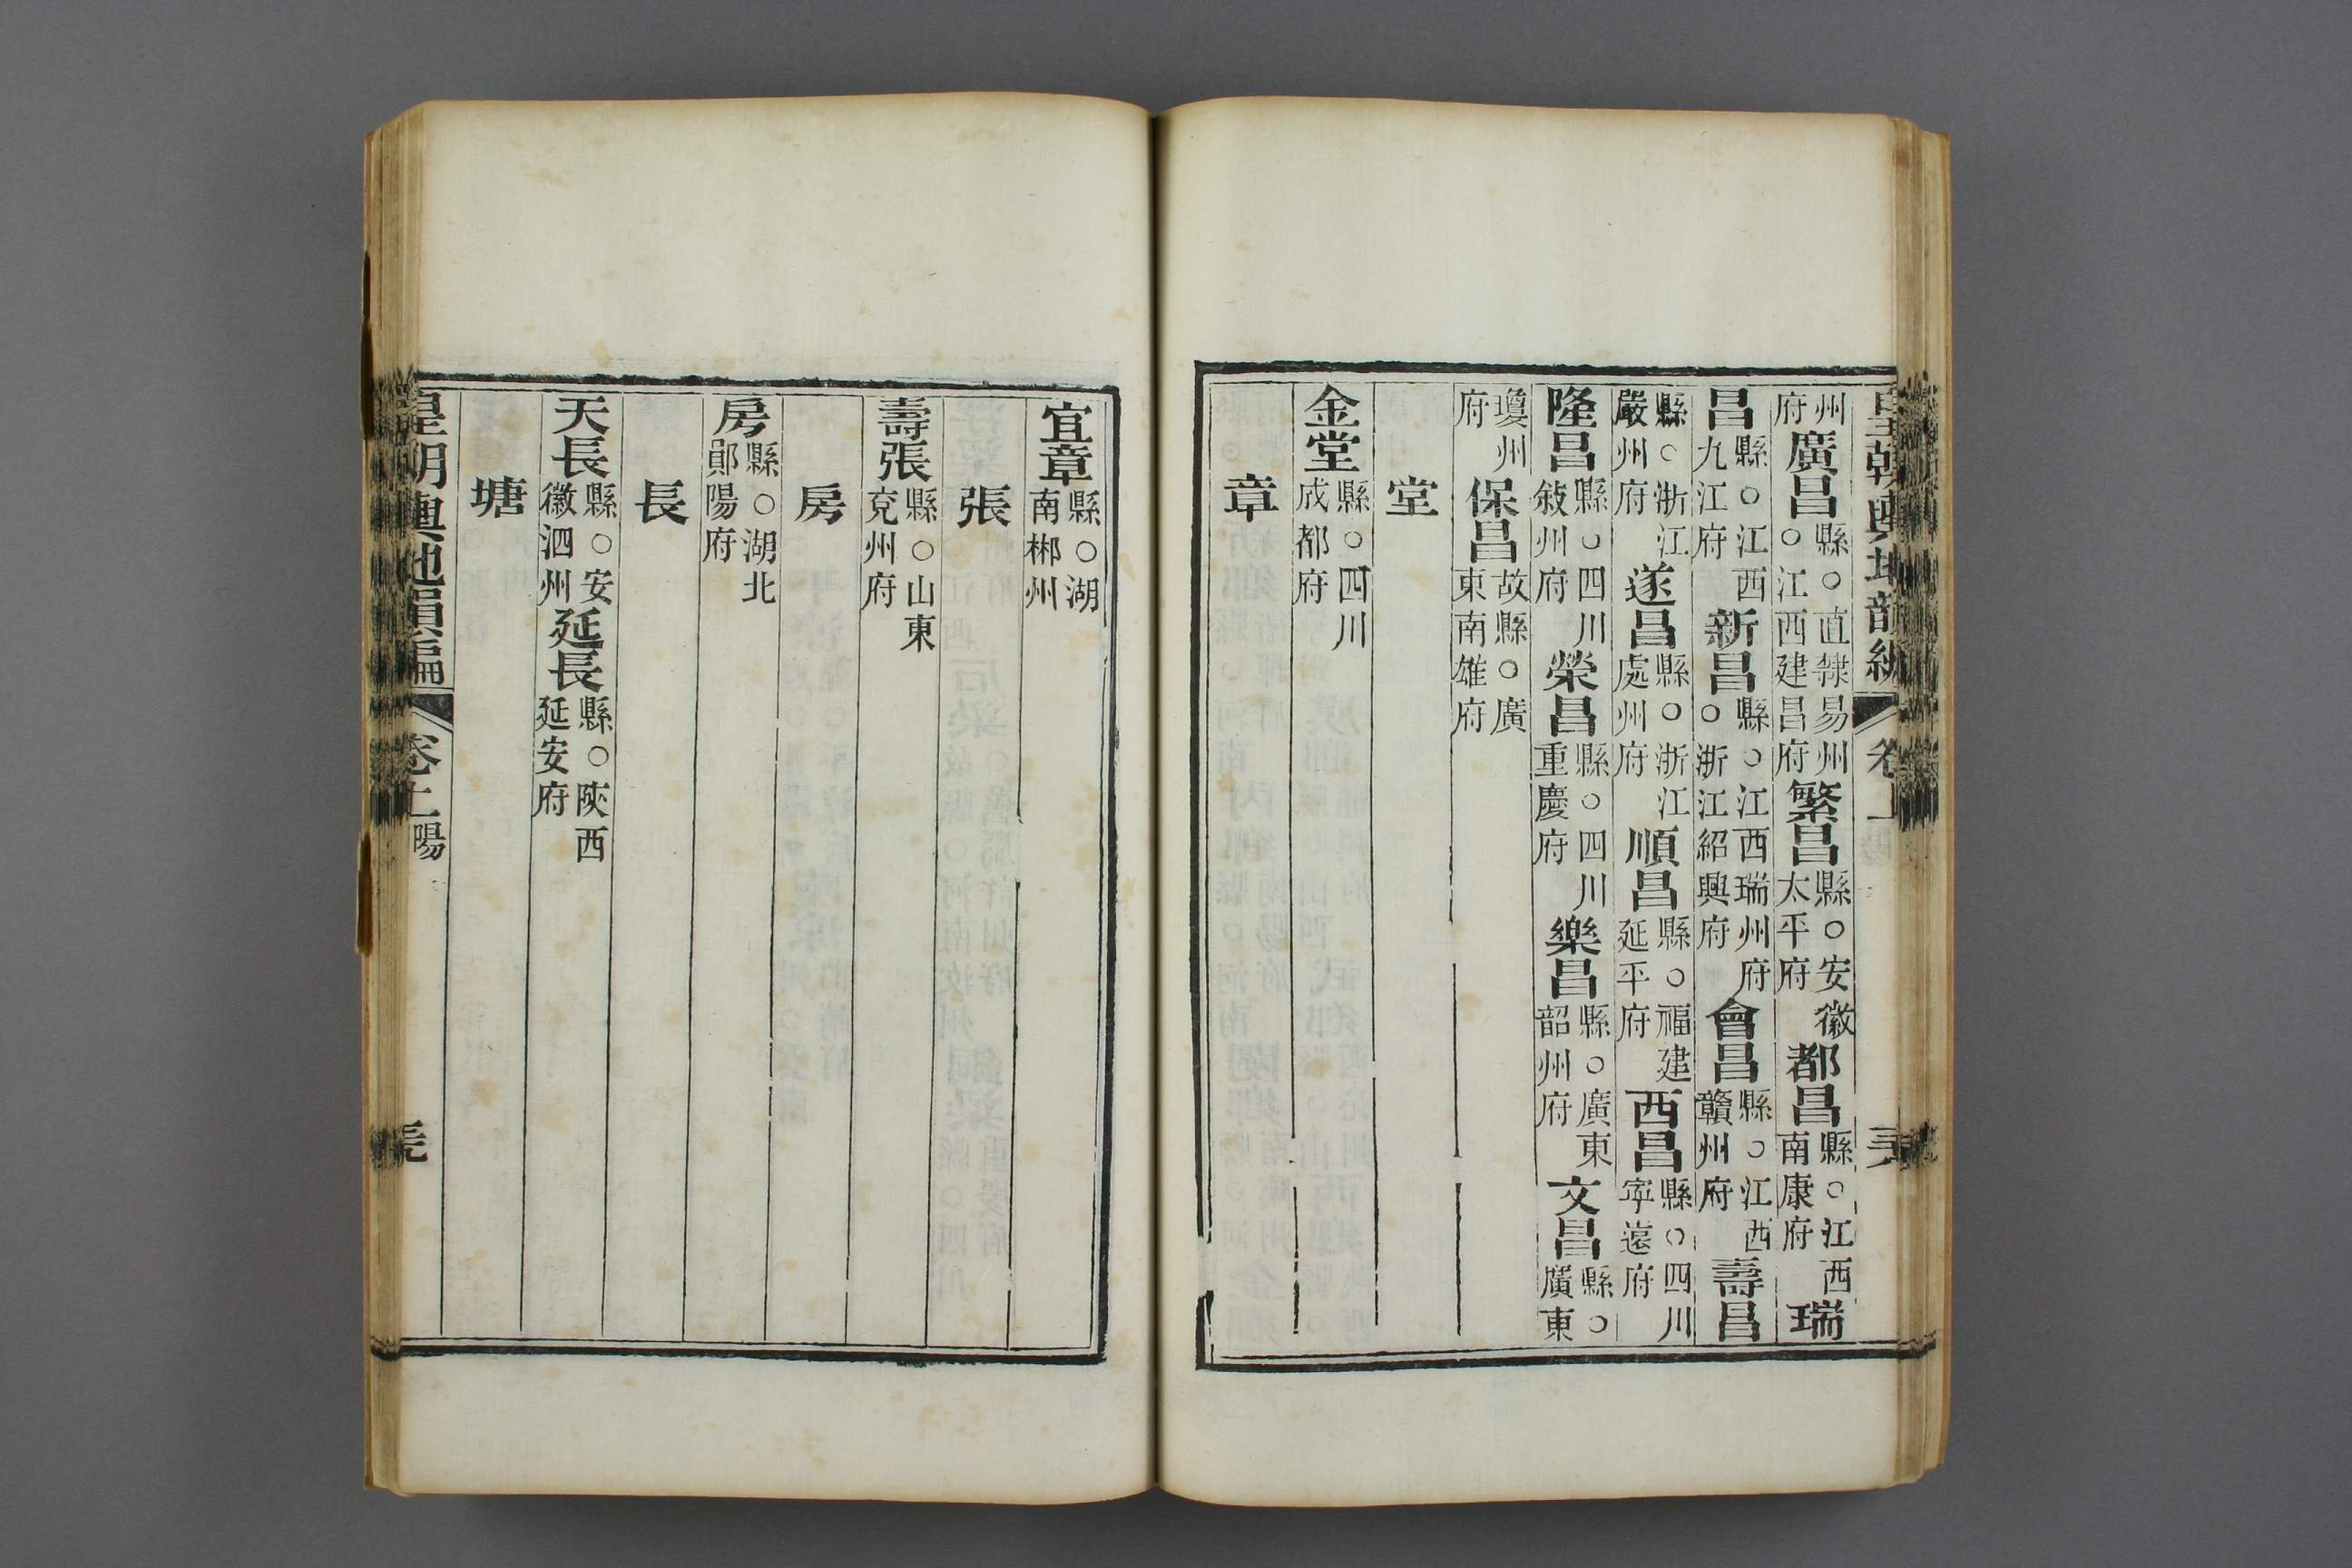 州府廣昌縣○直隸易州○江西建昌府繁昌縣○安徽太平府都昌縣○江西南康府瑞
昌縣○江西九江府新昌縣○江西瑞州府○浙江紹興府會昌縣○江西贛州府壽昌
縣○浙江嚴州府遂昌縣○浙江處州府順昌縣○福建延平府西昌縣○四川寧遠府
隆昌縣○四川敍州府榮昌縣○四川重慶府樂昌縣○廣東韶州府文昌縣○廣東
瓊州府保昌故縣○廣東南雄府
堂
金堂縣○四川成都府
章
宜章縣○湖南郴州
張
壽張縣○山東兗州府
房
房縣○湖北鄖陽府
長
天長縣○安徽泗州延長縣○陝西延安府
塘
皇朝輿地韻編 卷上 陽